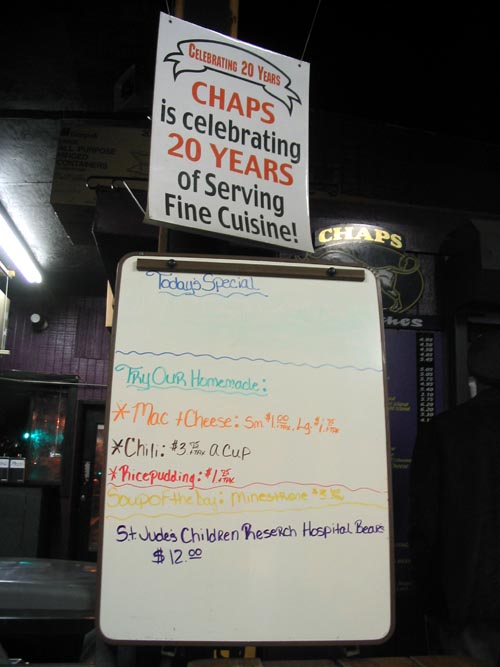 CELEBRATING 20 YEARS
CHAPS
is celebrating
20 YEARS
of Serving
Fine Cuisine!
CHAPS
ALL PURPOSE
HINGED
CONTAINERS
Today's Special
Try Our Homemade:
*Mac + Cheese: Sm. $1.00 +TAX Lg. $1.75 +TAX
*Chili: $3.75 +TAX a Cup
*Ricepudding: $1.75 +TAX
Soup of the Day: Minestrone
St Jude's Children Reserch Hospital Bears
$12.00